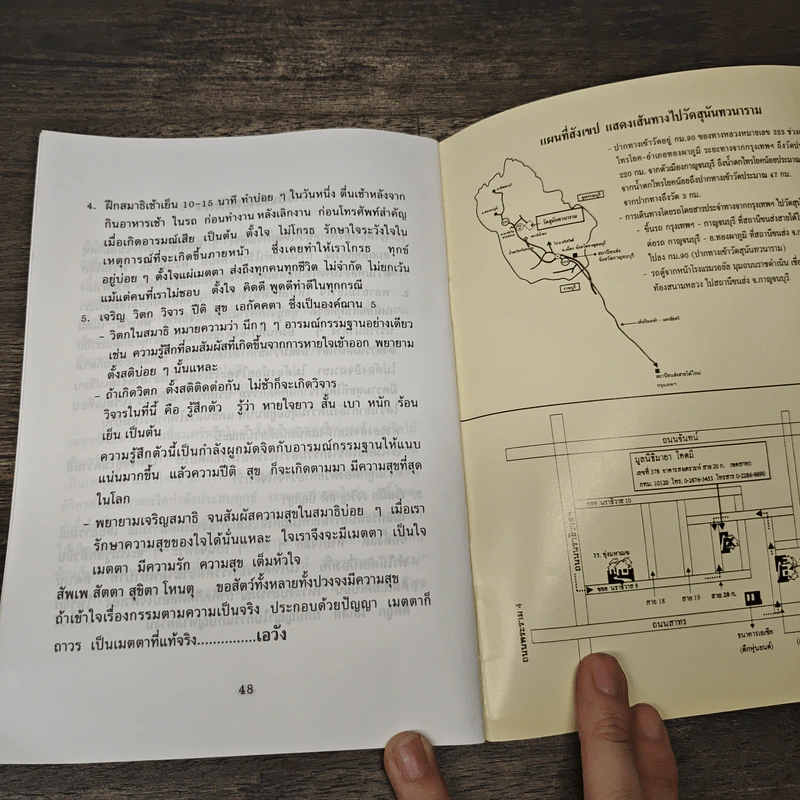 4. ฝึกสมาธิเช้าเย็น 10-15 นาที ทำบ่อย ๆ ในวันหนึ่ง ตื่นเช้าหลังจาก
กินอาหารเช้า ในรถ ก่อนทำงาน หลังเลิกงาน ก่อนโทรศัพท์สำคัญ
เมื่อเกิดอารมณ์เสีย เป็นต้น ตั้งใจ ไม่โกรธ รักษาใจระวังใจใน
เหตุการณ์ที่จะเกิดขึ้นภายหน้า ซึ่งเคยทำให้เราโกรธ ทุกข์
อยู่บ่อย ๆ ตั้งใจแผ่เมตตา ส่งถึงทุกคนทุกชีวิต ไม่จำกัด ไม่ยกเว้น
แม้แต่คนที่เราไม่ชอบ ตั้งใจ คิดดี พูดดีทำดีในทุกกรณี
5. เจริญ วิตก วิจาร ปีติ สุข เอกัคคตา ซึ่งเป็นองค์ฌาน 5
- วิตกในสมาธิ หมายความว่า นึกๆ ๆ อารมณ์กรรมฐานอย่างเดียว
เช่น ความรู้สึกที่ลมสัมผัสที่เกิดขึ้นจากการหายใจเข้าออก พยายาม
ตั้งสติบ่อย ๆ นั้นแหละ
- ถ้าเกิดวิตก ตั้งสติติดต่อกัน ไม่ช้าก็จะเกิดวิจาร
วิจารในที่นี้ คือ รู้สึกตัว รู้ว่า หายใจยาว สั้น เบา หนัก ร้อน
เย็น เป็นต้น
ความรู้สึกตัวนี้เป็นกำลังผูกมัดจิตกับอารมณ์กรรมฐานให้แนบ
แน่นมากขึ้น แล้วความปีติ สุข ก็จะเกิดตามมา มีความสุขที่สุด
ในโลก
- พยายามเจริญสมาธิ จนสัมผัสความสุขในสมาธิบ่อย ๆ เมื่อเรา
รักษาความสุขของใจได้นั่นแหละ ใจเราจึงจะมีเมตตา เป็นใจ
เมตตา มีความรัก ความสุข เต็มหัวใจ
สัพเพ สัตตา สุขิตา โหนตุ ขอสัตว์ทั้งหลายทั้งปวงจงมีความสุข
ถ้าเข้าใจเรื่องกรรมตามความเป็นจริง ประกอบด้วยปัญญา เมตตาก็
ถาวร เป็นเมตตาที่แท้จริง...............เอวัง
48
แผนที่สังเขป แสดงเส้นทางไปวัดสุนันทวนาราม
- ปากทางเข้าวัดอยู่ กม.90 ของทางหลวงหมายเลข 323 ช่วง
ไทรโยค-อำเภอทองผาภูมิ ระยะทางจากกรุงเทพฯ ถึงวัดประ
220 กม. จากตัวเมืองกาญจนบุรี ถึงน้ำตกไทรโยคน้อยประมาณ
จากน้ำตกไทรโยคน้อยถึงปากทางเข้าวัดประมาณ 47 กม.
จากปากทางถึงวัด 3 กม.
- การเดินทางโดยรถโดยสารประจำทางจากกรุงเทพฯ ไปวัดสุนั
- ขึ้นรถ กรุงเทพฯ - กาญจนบุรี ที่สถานีขนส่งสายใต้
ต่อรถ กาญจนบุรี - อ.ทองผาภูมิ ที่สถานีขนส่ง
ไปลง กม.90 (ปากทางเข้าวัดสุนันทวนาราม)
- รถตู้จากหน้าโรงแรมรอยัล มุมถนนราชดำเนิน เชื่อ
ท้องสนามหลวง ไปสถานีขนส่ง จ.กาญจนบุรี
วัดสุนันทวนาราม
สุพรรณบุรี
ราชบุรี
สถานีขนส่งสายใต้ใหม่
กรุงเทพฯ
ถนนจันทน์
มูลนิธิมายา โคตมี
เลขที่ 378 อาคารสงเคราะห์ สาย 20 ก. เขตสาทร
กทม. 10120 โทร. 0-2676-3453 โทรสาร 0-2286-8690
ซอย นราธิวาส 10
ถนนนราธิวาสฯ
รร. ทุ่งมหาเมฆ
ซอย นราธิวาส 8
สาย 18
สาย 19
สาย 20 ก.
ถนนพระราม 4
ถนนสาทร
ธนาคารเอเชีย
(ตึกหุ่นยนต์)